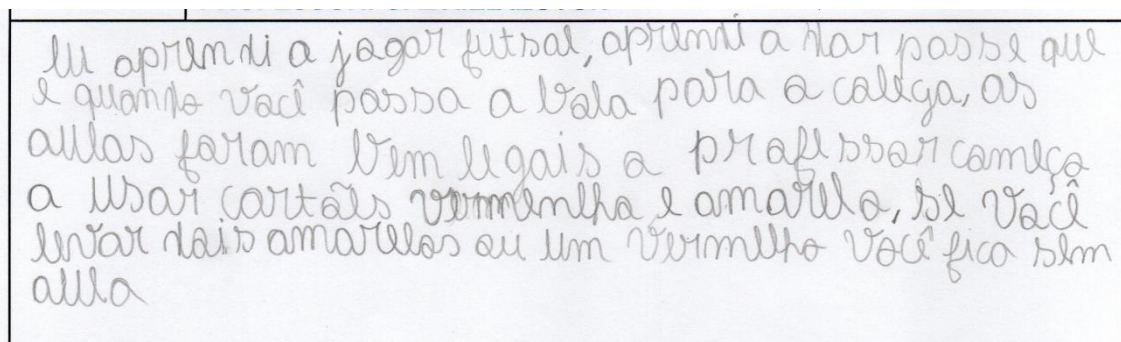 Eu aprendi a jogar futsal, aprendi a dar passe que
e quando você passa a bola para o collega, as
aulas foram bem legais o professor começo
a usar cartões vermenlho e amarelo, se você
levar dois amarelos ou um vermelho você fica sem
aula